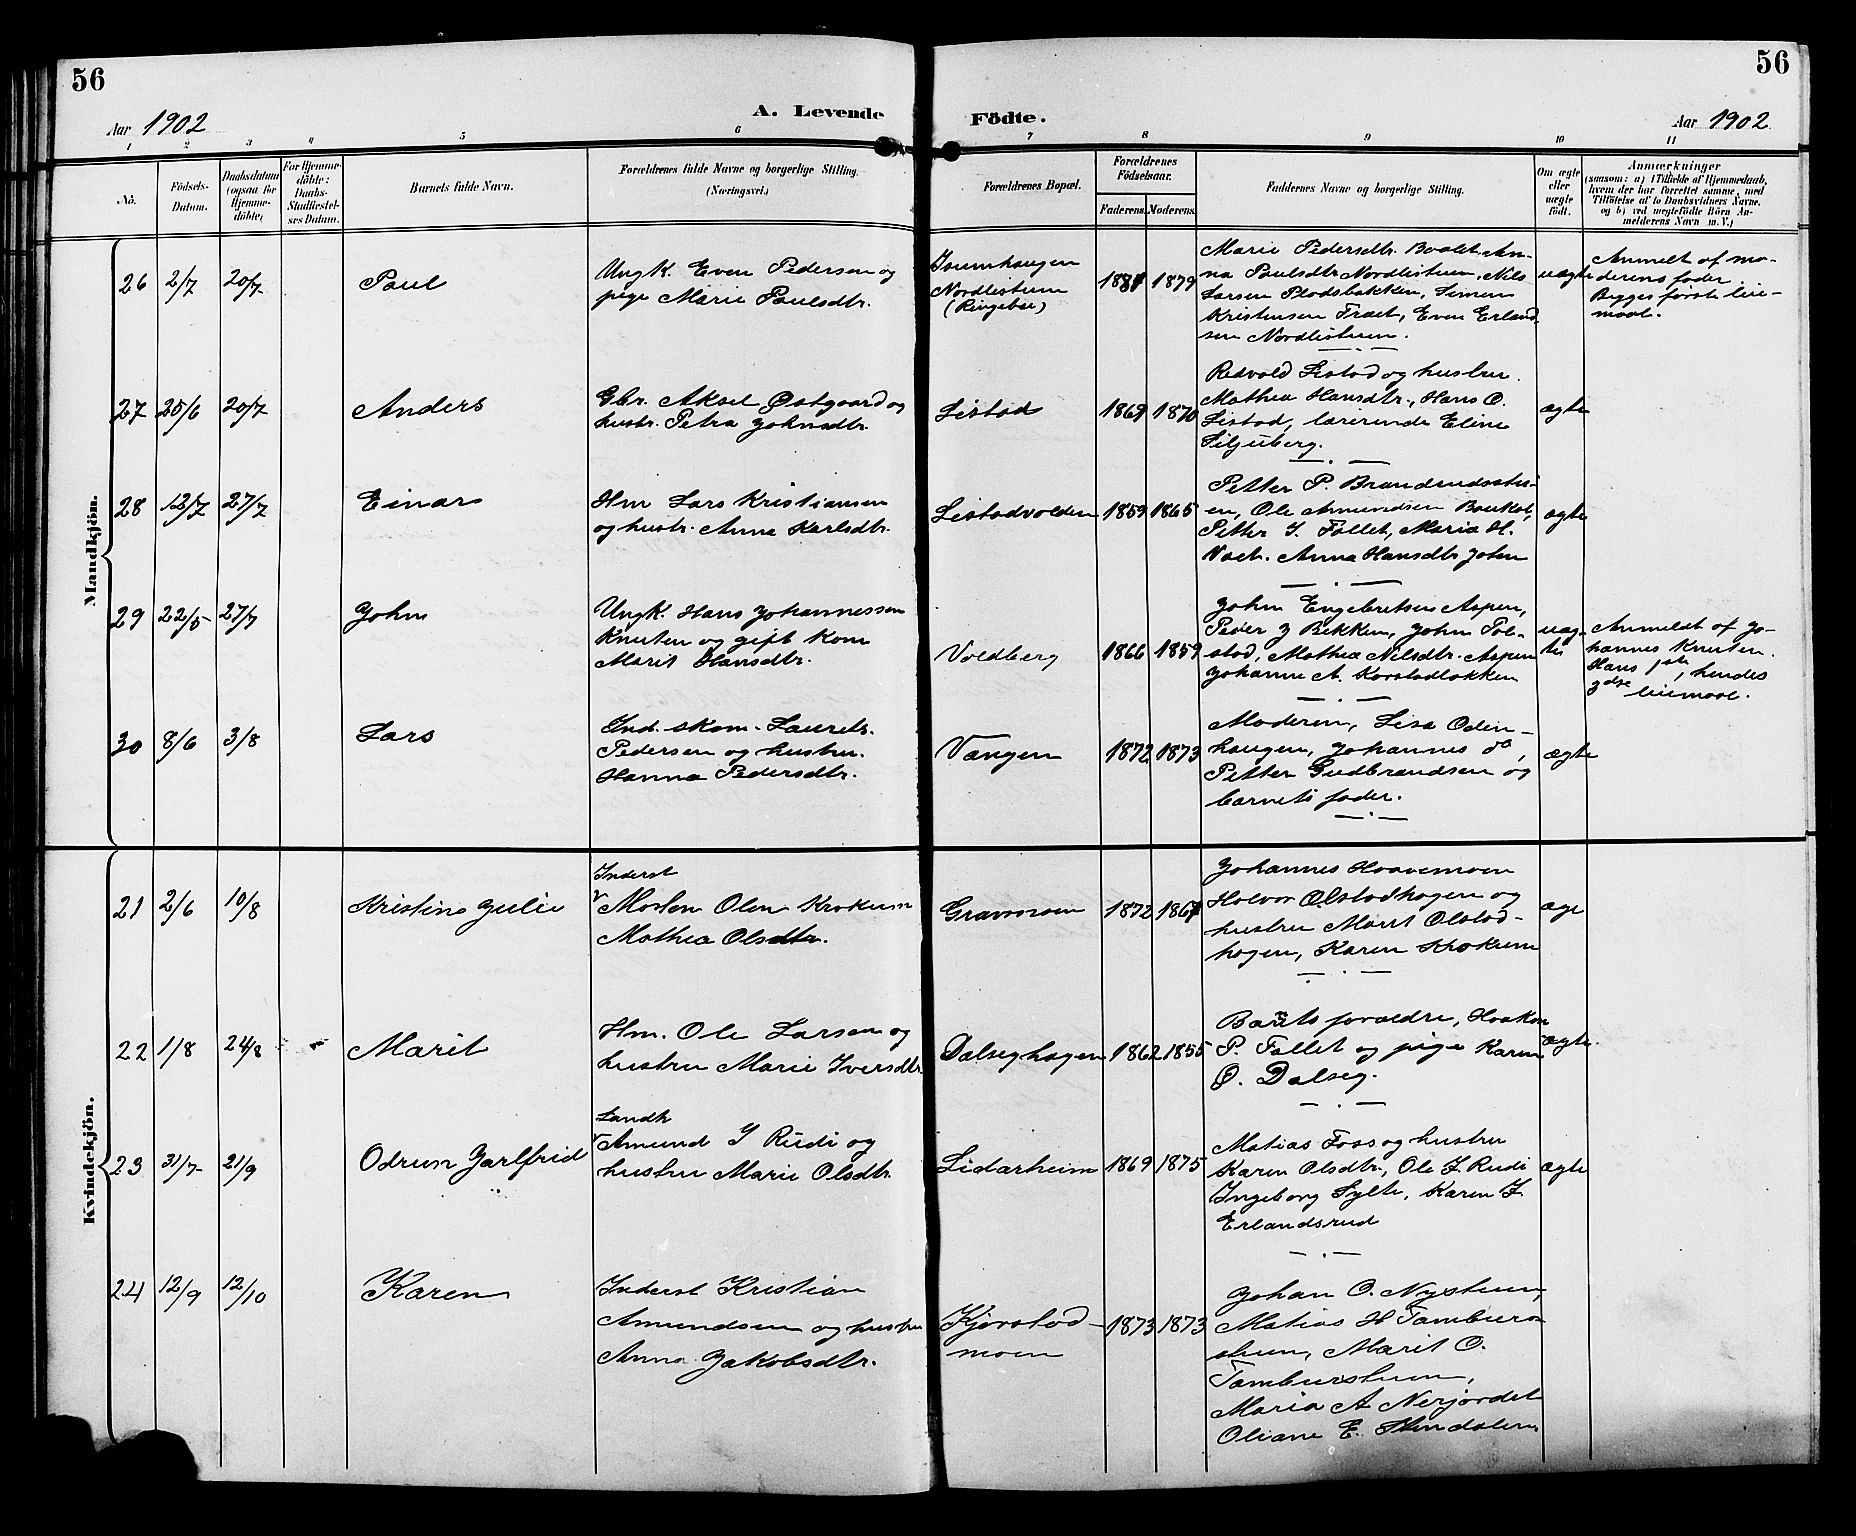 56
56
Aar 1902
A. Levende
Födte.
Aar 1902
1 2 3 4 5 6 7 8 9 10 11
No.
Födsels-
Datum.
Daabsdatum
(ogsaa for
Hjemme-
döbte)
For Hjemme-
döbte:
Daabs-
Stadfæstel-
ses Datum.
Barnets fulde Navn.
Forældrenes fulde Navne og borgerlige Stilling.
(Næringsvei.)
Forældrenes Bopæl.
Forældrenes
Födselsaar.
Faderens. Moderens.
Faddernes Navne og borgerlige Stilling.
Om ægte
eller
uægte
födt.
Anmærkninger
(saasom: a) i Tilfælde af Hjemmedaab,
hvem der har forrettet samme, med
Tilföielse af to Daabsvidners Navne,
og b) ved uægtefödte Börn An-
melderens Navn m. V.)
Mandkjön.
26 2/7 20/7 Paul
Ungk. Even Pedersen og
pige Marie Paulsdtr.
Nordlistuen
(Ringebu)
1881 1879
Marie Pedersdtr. Baalet, An-
na Paulsdtr Nordlistuen, Nils
Larsen Plodsbakken, Simen
Kristensen Træet, Even Erland-
sen Nordlistuen.
uægte
Anmelt af mo-
derens fader.
Begges første leie-
maal.
27 25/6 20/7 Anders
Gbr. Aksel Østgaard og
hustr. Petra Johnsdtr.
Listad
1869 1870
Redvald Listad og hustru
Mathea Hansdtr., Hans O.
Listad, lærerinde Eline
Siljuberg.
ægte
28 12/7 27/7 Einar
Hm Lars Kristiansen
og hustr. Anna Karlsdtr.
Listadvolden
1859 1865
Petter P. Brandrudsstu-
en, Ole Amundsen Baukol,
Petter J. Follet, Maria H.
Voet. Anna Hansdtr John
ægte
29 22/5 27/7 John
Ungk. Hans Johannessen
Knuten og gift kone
Marit Hansdtr.
Voldberg
1866 1859
John Engebretsen Aspen,
Peder J Bekken, John Tol-
stad, Mathea Nilsdtr. Aspen
Johanne A. Korstadløkken
uæg-
te
Anmeldt af Jo-
hannes Knuten.
Hans 1ste, hendes
2dse leiemaal.
30 8/6 3/8 Lars
Ind. skom. Laurets
Pedersen og hustru
Hanna Pedersdtr.
Vangen
1872 1873
Moderen, Lisa Oden-
haugen, Johannes do,
Petter Gudbrandsen og
barnets fader.
ægte
Kvindekjön.
21 2/6 10/8 Kristine Julie
Inderst
Morten Olen Krokum
Mathea Olsdtr.
Gravmoen
1872 1867
Johannes Haavemoen
Halvor Olstadhagen og
hustru Marit Olstad-
hagen, Karen Krokum
æge
22 1/8 24/8 Marit
Hm. Ole Larsen og
hustru Marie Iversdtr.
Dalseghagen
1862 1855
Barnets forældre, Haakon
P. Follet og pige Karen
O. Dalseg.
ægte.
23 31/7 21/9 Odrun Jarlfrid
Landh
Amund J Rudi og
hustru Marie Olsdtr.
Lidarheim
1869 1875
Matias Foss og hustru
Karen Olsdtr., Ole J. Rudi
Ingeborg Sylte, Karen J.
Erlandsrud
ægte
24 12/9 12/10 Karen
Inderst Kristian
Amundsen og hustru
Anna Jakobsdtr.
Kjørstad-
moen
1873 1873
Johan O. Nystuen,
Matias H Tambura-
stuen, Marit O.
Tamburstuen,
Maria A Nerjordet
Oliane E. Stendalen.